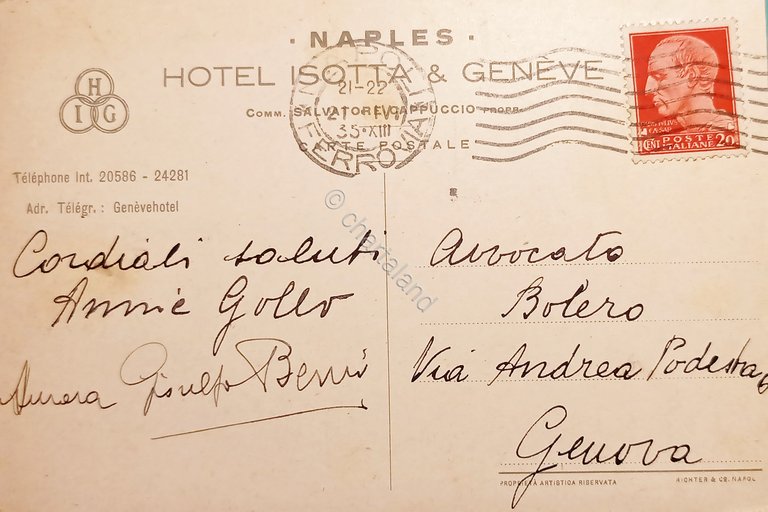 · NAPLES ·
HOTEL ISOTTA & GENÈVE
COMM. SALVATORE CAPPUCCIO PROPR.
CARTE POSTALE
H
I G
Téléphone Int. 20586 - 24281
Adr. Télégr.: Genèvehotel
NAPOLI
21-22
35·XIII
FERROVIA
POSTE
ITALIANE
CENT 20
Cordiali saluti
Annie Gollo
Gisulfo Berni
Avvocato
Bolero
Via Andrea Podesta 6
Genova
PROPRIETÀ ARTISTICA RISERVATA
RICHTER & CO. NAPOLI
© chartaland